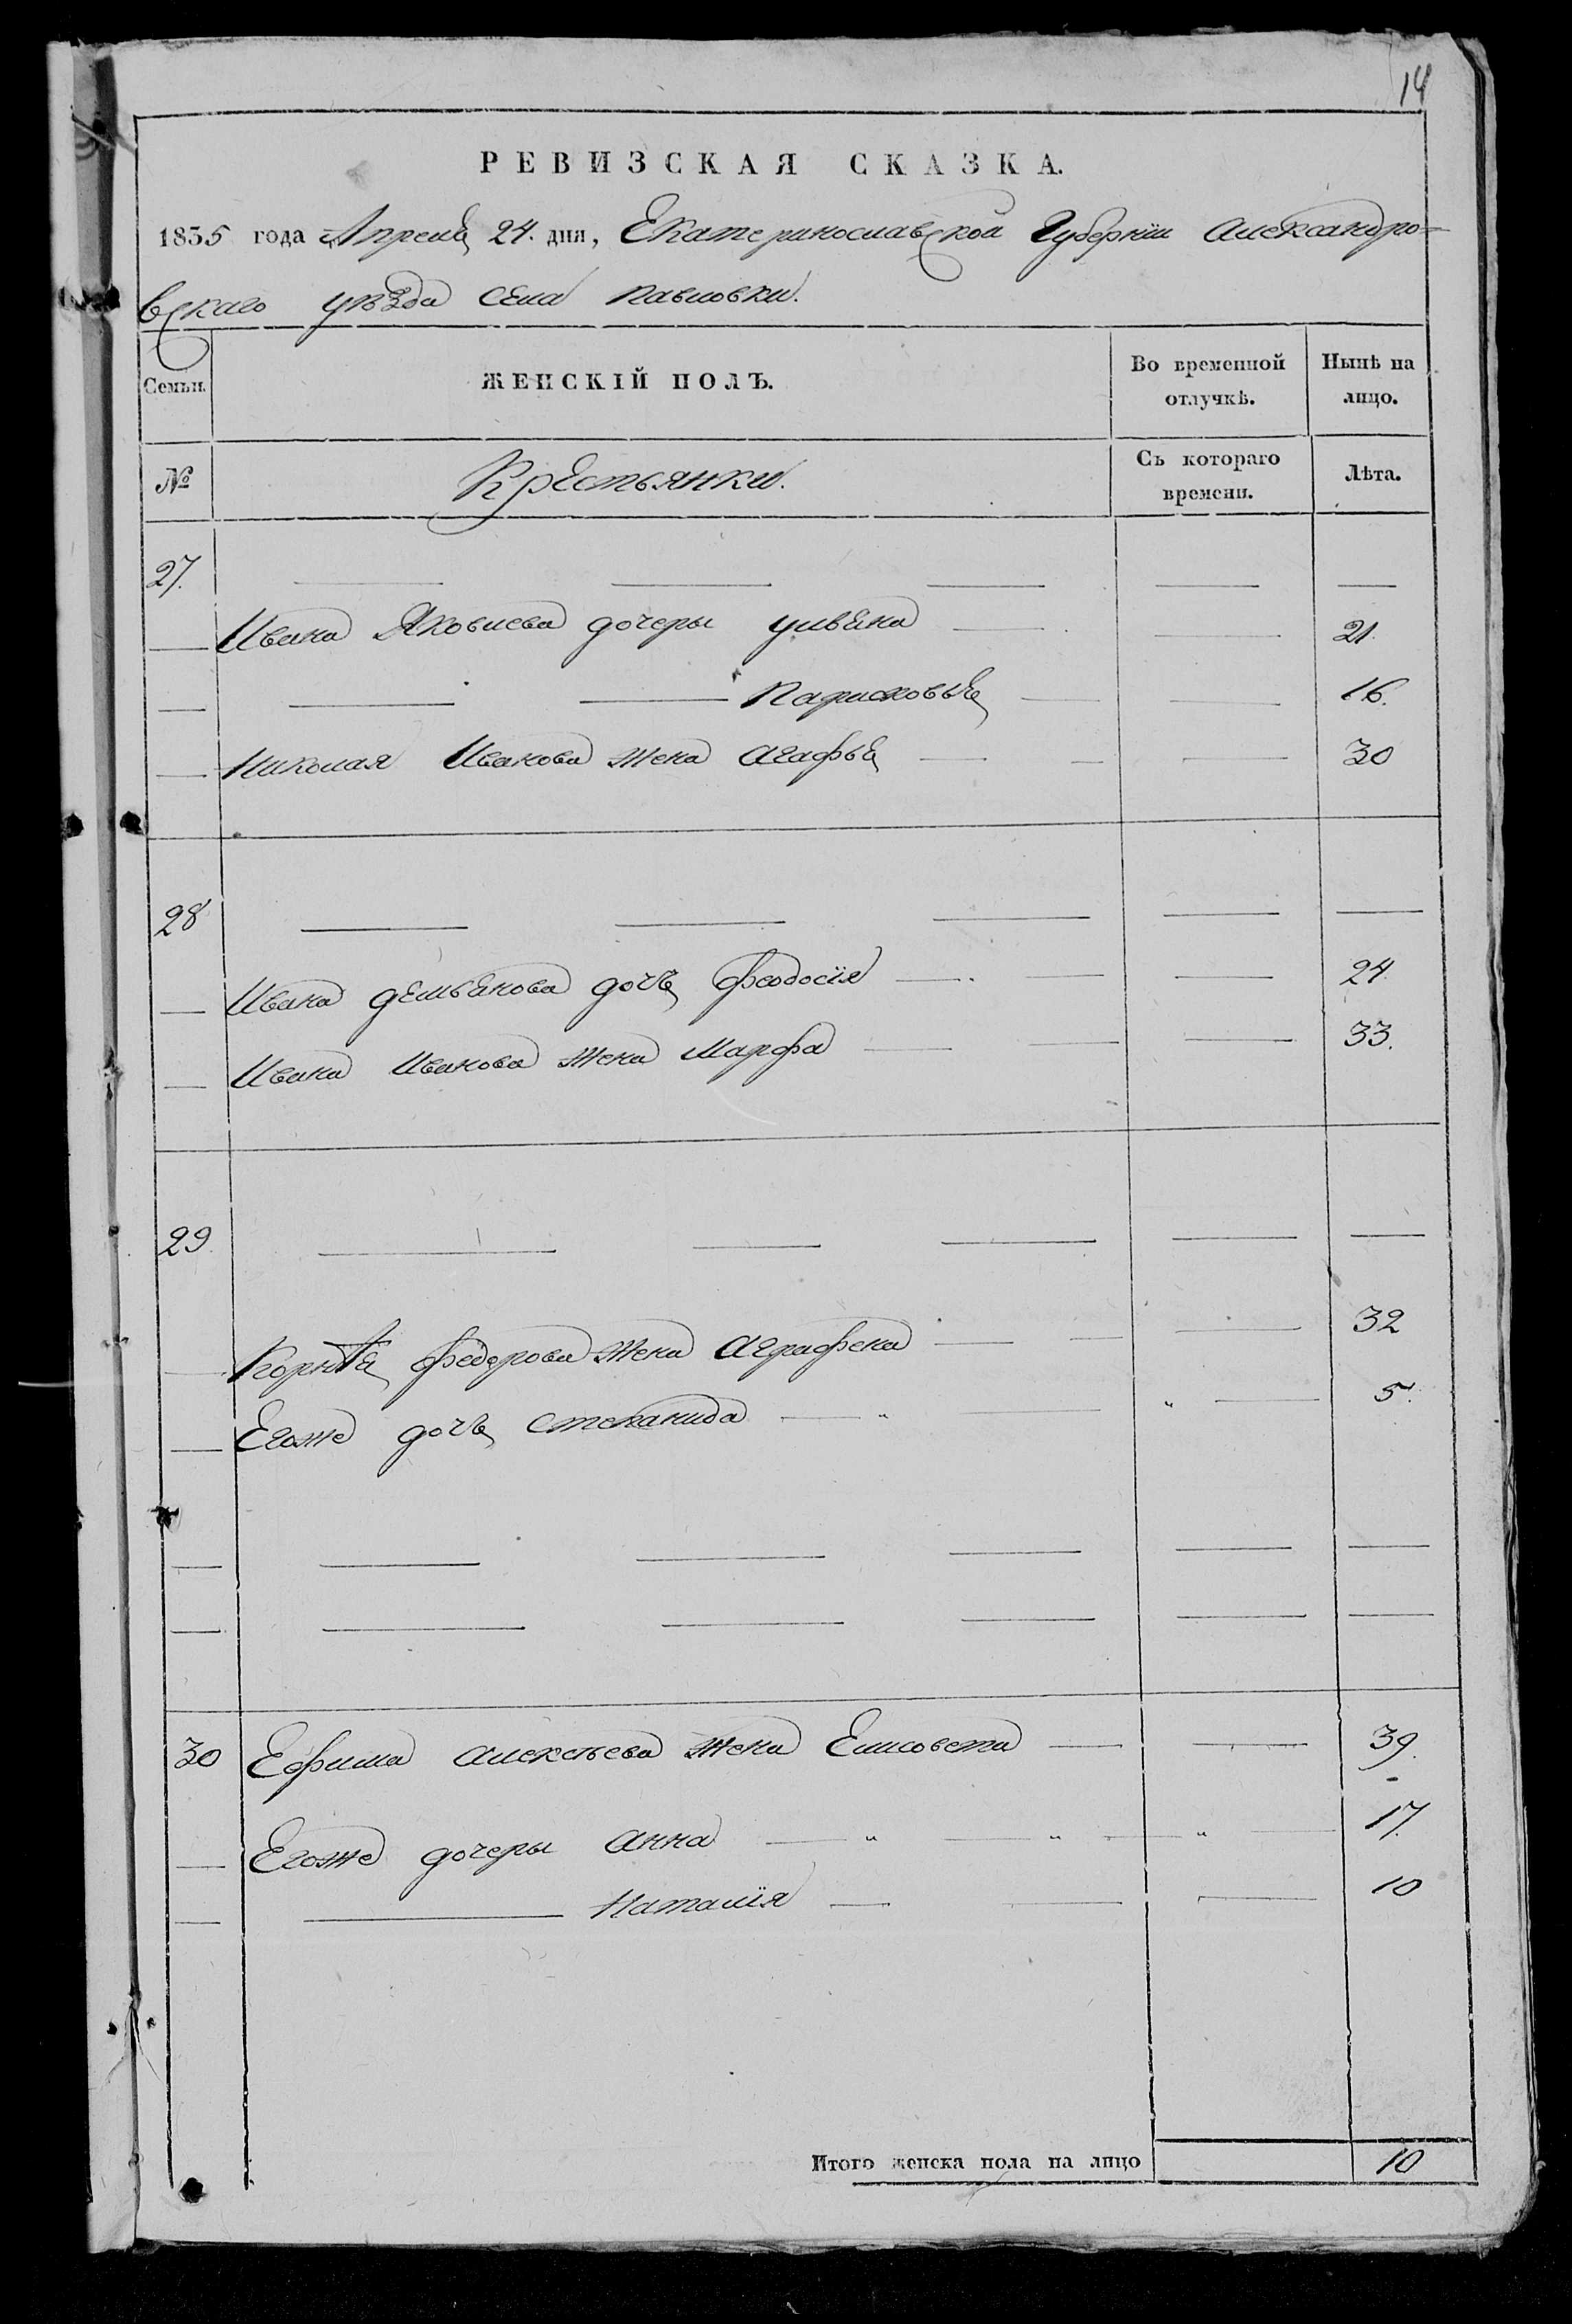 14
РЕВИЗСКАЯ СКАЗКА.
1835 года Апреля 24. дня, Екатеринославской Губернїи Александро=
вскаго уѣзда села Павловки.
Семьи.
ЖЕНСКІЙ ПОЛЪ.
Во временной отлучкѣ.
Нынѣ на лицо.
№
Крестьянки.
Съ котораго времени.
Лѣта.
27.
Ивана Яковлева дочеры Ульяна 21.
Парасковья 16.
Николая Иванова жена Агафья 30
28
Ивана Демьянова дочь Феодосїя 24.
Ивана Иванова жена Марфа 33.
29.
Корнѣя Федорова жена Аграфена 32
Егоже дочь Степанида 5.
30 Ефима Алексѣева жена Елисовета 39.
Егоже дочеры Анна 17.
Наталїя 10
Итого женска пола на лицо 10